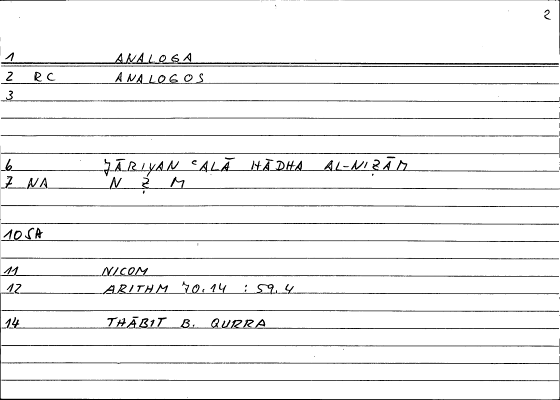 2
1 ANALOGA
2 RC ANALOGOS
3
6 JĀRIYAN ʿALĀ HĀDHA AL-NIẒĀM
7 NA N Ẓ M
10 SA
11 NICOM
12 ARITHM 70.14 : 59.4
14 THĀBIT B. QURRA